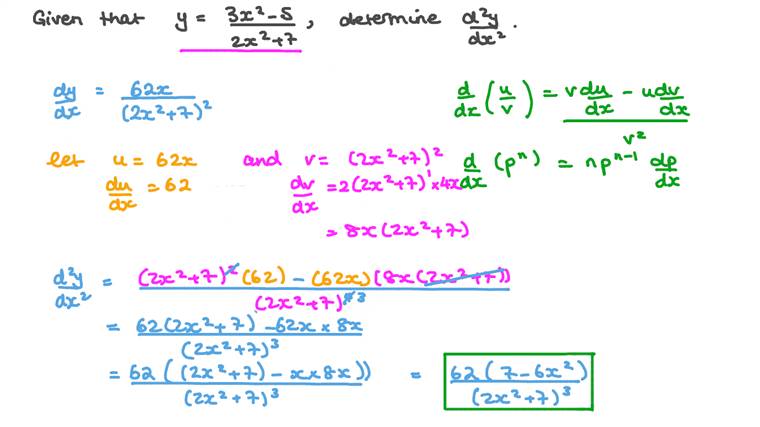 Given that y = (3x² - 5)/(2x² + 7), determine d²y/dx².
dy/dx = 62x/(2x² + 7)²
d/dx (u/v) = (v du/dx - u dv/dx)/v²
let u = 62x and v = (2x² + 7)²
d/dx (pⁿ) = npⁿ⁻¹ dp/dx
du/dx = 62
dv/dx = 2(2x² + 7)¹ × 4x
= 8x(2x² + 7)
d²y/dx² = ((2x² + 7)²(62) - (62x)(8x(2x² + 7)))/(2x² + 7)⁴ ³
= (62(2x² + 7) - 62x × 8x)/(2x² + 7)³
= 62((2x² + 7) - x × 8x))/(2x² + 7)³ = 62(7 - 6x²)/(2x² + 7)³